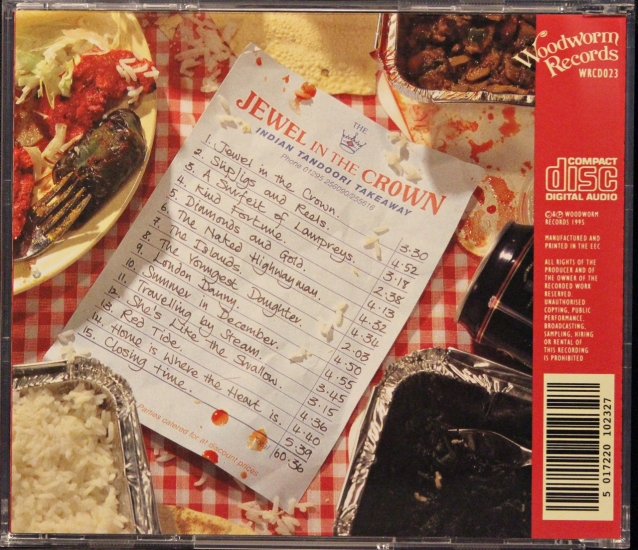 THE
JEWEL IN THE CROWN
INDIAN TANDOORI TAKEAWAY
1. Jewel in the Crown. 3.30
2. Slipjigs and Reels. 4.52
3. A Surfeit of Lampreys. 3.17
4. Kind Fortune. 2.38
5. Diamonds and Gold. 4.13
6. The Naked Highwayman. 4.32
7. The Islands. 4.34
8. The Youngest Daughter 2.03
9. London Danny. 4.50
10. Summer in December. 4.55
11. Travelling by Steam. 3.45
12. She's Like the Swallow. 3.15
13. Red Tide 4.36
14. Home is Where the Heart is. 4.40
15. Closing time. 5.39
60.36
Parties catered for at discount prices
Woodworm
Records
WRCD023
COMPACT
disc
DIGITAL AUDIO
©&℗ WOODWORM
RECORDS 1995
MANUFACTURED AND
PRINTED IN THE EEC
ALL RIGHTS OF THE
PRODUCER AND OF
THE OWNER OF THE
RECORDED WORK
RESERVED.
UNAUTHORISED
COPYING, PUBLIC
PERFORMANCE,
BROADCASTING,
SAMPLING, HIRING
OR RENTAL OF
THIS RECORDING
IS PROHIBITED
5 017220 102327